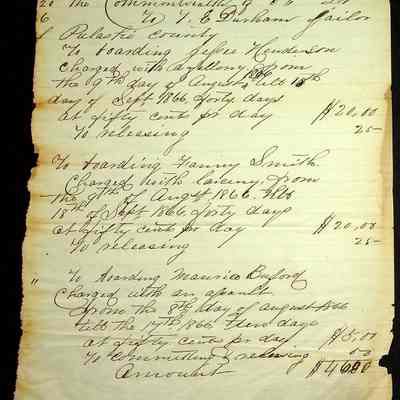 20 The Commonwealth of
6 To T. E. Durham Jailor
Pulaski County
To boarding Henderson
Charged with a fellony from
the 9th day of August 1866 till 18th
day of Sept 1866, forty days
at fifty cents pr day $20,00
To releasing 25-
To boarding Fanny Smith
Charged with larceny, from
the 9th of Augst 1866. till
18th of Sept 1866, forty days
at fifty cents pr day $20,00
To releasing 25-
" To boarding Maurice Buford
Charged with an assault
from the 8th day of august 1866
till the 17th, 1866 days
at fifty cents pr day $5,00
To committing & releasing 50
Amount